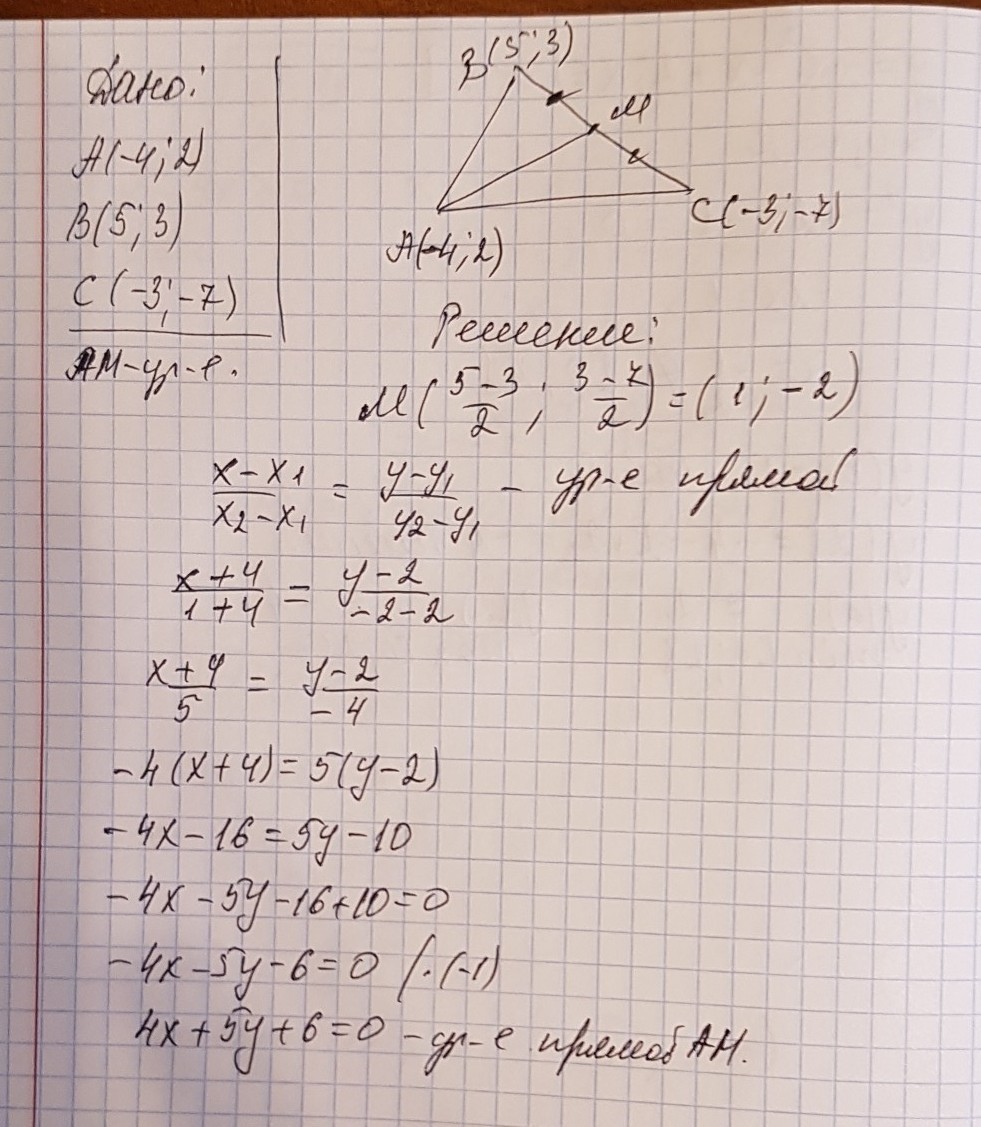 Дано:
A(-4; 2)
B(5; 3)
C(-3; -7)
AM-ур-е.
B(5; 3)
M
C(-3; -7)
A(-4; 2)
Решение:
M((5-3)/2; (3-7)/2) = (1; -2)
(x-x₁)/(x₂-x₁) = (y-y₁)/(y₂-y₁) - ур-е прямой
(x+4)/(1+4) = (y-2)/(-2-2)
(x+4)/5 = (y-2)/(-4)
-4(x+4)=5(y-2)
-4x-16=5y-10
-4x-5y-16+10=0
-4x-5y-6=0 /·(-1)
4x+5y+6=0 - ур-е прямой AM.